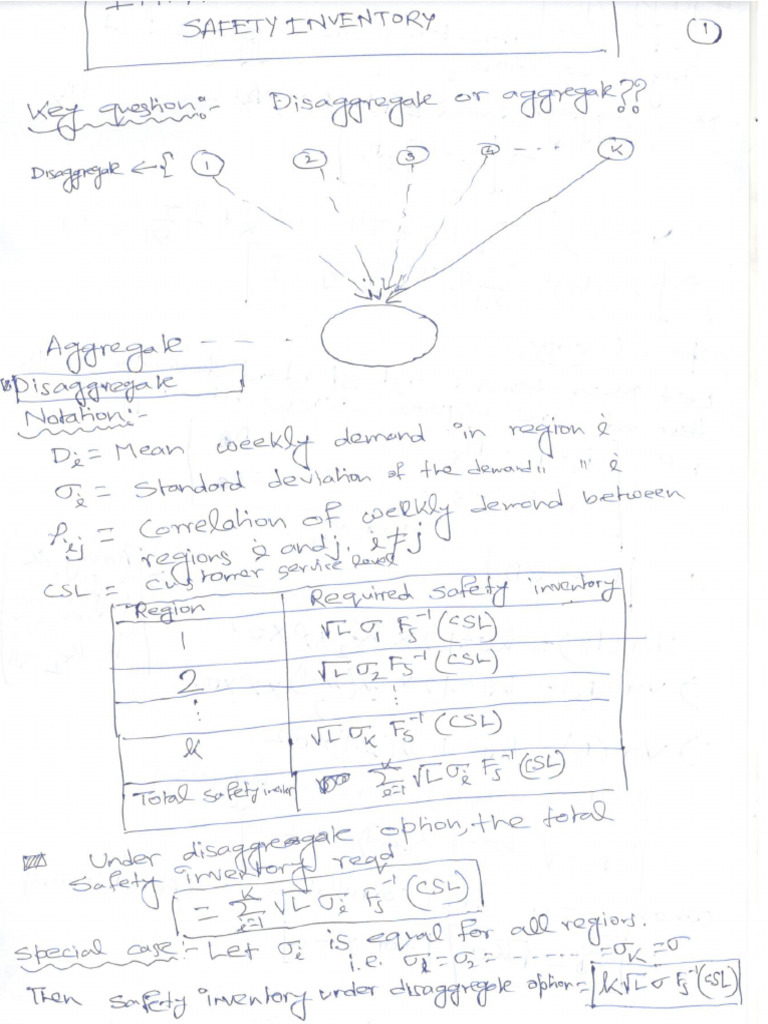 SAFETY INVENTORY
1
Key question:- Disaggregate or aggregate??
Disaggregate ← { 1 2 3 4 ---- K
Aggregate - - - -
Disaggregate
Notation:-
Di = Mean weekly demand in region i
σi = Standard deviation of the demand " " i
ρij = Correlation of weekly demand between
regions i and j, i ≠ j
CSL = customer service level
Region Required safety inventory
1 √L σ1 Fs⁻¹ (CSL)
2 √L σ2 Fs⁻¹ (CSL)
⋮ ⋮
k √L σK Fs⁻¹ (CSL)
Total safety inven Σ_{i=1}^{K} √L σi Fs⁻¹ (CSL)
Under disaggregate option, the total
safety inventory reqd.
= Σ_{i=1}^{K} √L σi Fs⁻¹ (CSL)
Special case:- Let σi is equal for all regions.
i.e. σ1 = σ2 = ------- = σK = σ
Then safety inventory under disaggregate option = k√L σ Fs⁻¹(CSL)